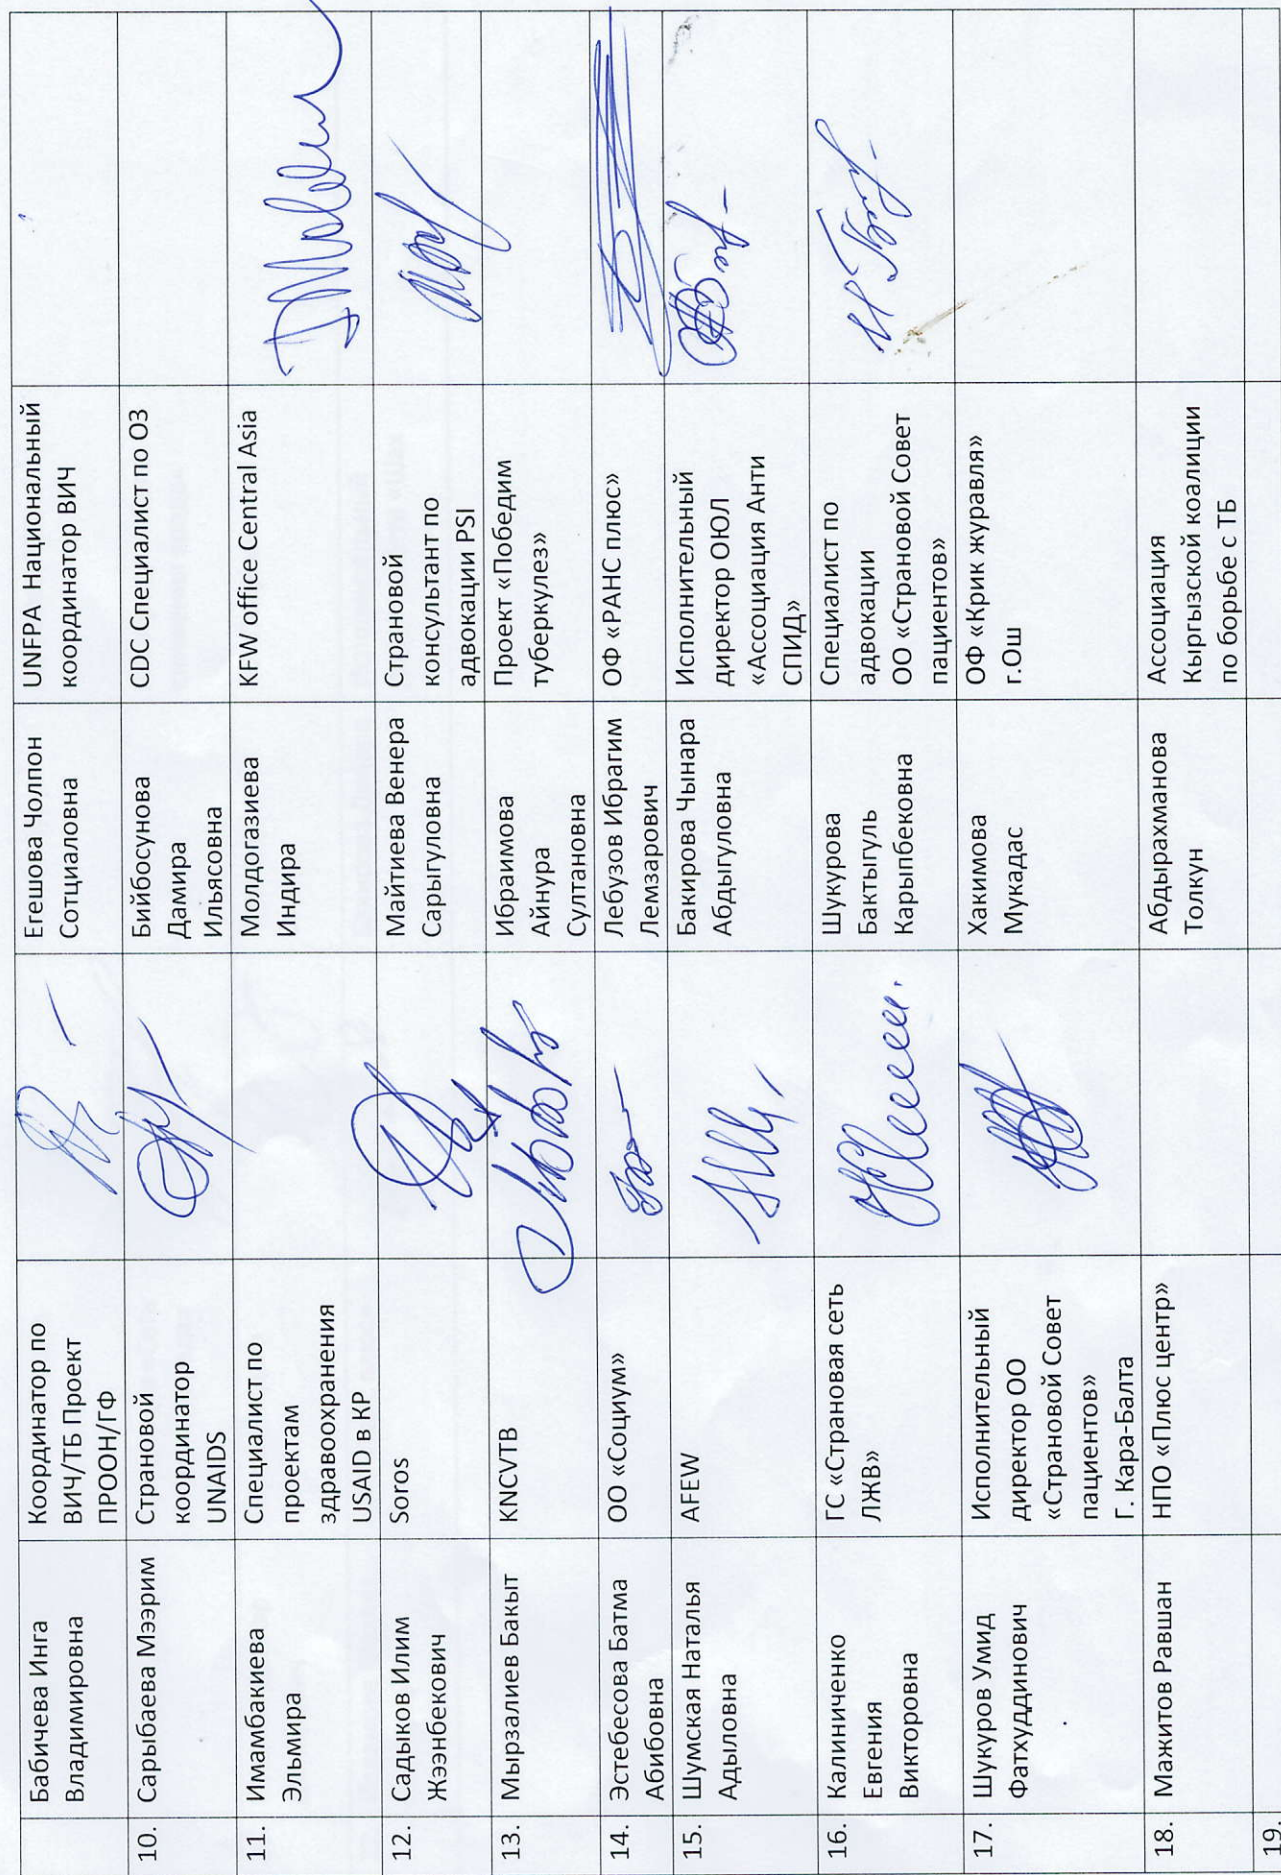 Бабичева Инга
Владимировна
Координатор по
ВИЧ/ТБ Проект
ПРООН/ГФ
Егешова Чолпон
Сотциаловна
UNFPA Национальный
координатор ВИЧ
10.
Сарыбаева Мээрим
Страновой
координатор
UNAIDS
Бийбосунова
Дамира
Ильясовна
CDC Специалист по ОЗ
11.
Имамбакиева
Эльмира
Специалист по
проектам
здравоохранения
USAID в КР
Молдогазиева
Индира
KFW office Central Asia
12.
Садыков Илим
Жээнбекович
Soros
Майтиева Венера
Сарыгуловна
Страновой
консультант по
адвокации PSI
13.
Мырзалиев Бакыт
KNCVTB
Ибраимова
Айнура
Султановна
Проект «Победим
туберкулез»
14.
Эстебесова Батма
Абибовна
ОО «Социум»
Лебузов Ибрагим
Лемзарович
ОФ «РАНС плюс»
15.
Шумская Наталья
Адыловна
AFEW
Бакирова Чынара
Абдыгуловна
Исполнительный
директор ОЮЛ
«Ассоциация Анти
СПИД»
16.
Калиниченко
Евгения
Викторовна
ГС «Страновая сеть
ЛЖВ»
Шукурова
Бактыгуль
Карыпбековна
Специалист по
адвокации
ОО «Страновой Совет
пациентов»
17.
Шукуров Умид
Фатхуддинович
Исполнительный
директор ОО
«Страновой Совет
пациентов»
Г. Кара-Балта
Хакимова
Мукадас
ОФ «Крик журавля»
г.Ош
18.
Мажитов Равшан
НПО «Плюс центр»
Абдырахманова
Толкун
Ассоциация
Кыргызской коалиции
по борьбе с ТБ
19.